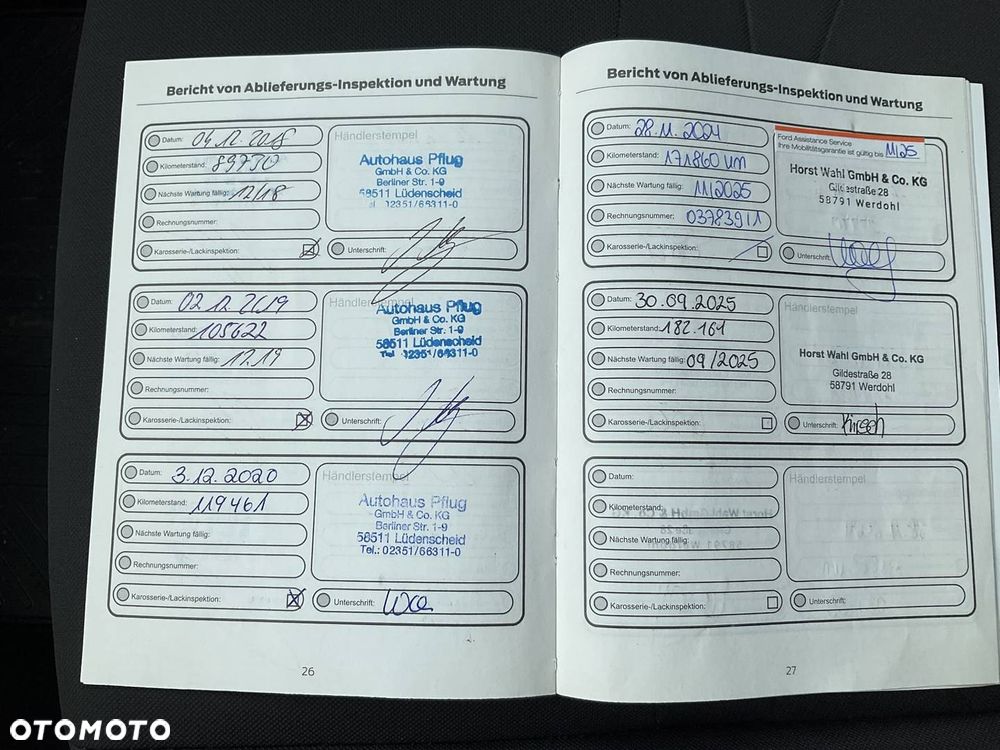 Bericht von Ablieferungs-Inspektion und Wartung
Datum: 04.12.2018
Kilometerstand: 89730
Nächste Wartung fällig: 12/18
Rechnungsnummer:
Karosserie-/Lackinspektion:
Händlerstempel
Autohaus Pflug
GmbH & Co. KG
Berliner Str. 1-9
58511 Lüdenscheid
02351/66311-0
Unterschrift:
Datum: 02.12.2019
Kilometerstand: 105622
Nächste Wartung fällig: 12.19
Rechnungsnummer:
Karosserie-/Lackinspektion:
Händlerstempel
Autohaus Pflug
GmbH & Co. KG
Berliner Str. 1-9
58511 Lüdenscheid
Tel 02351/66311-0
Unterschrift:
Datum: 3.12.2020
Kilometerstand: 119461
Nächste Wartung fällig:
Rechnungsnummer:
Karosserie-/Lackinspektion:
Händlerstempel
Autohaus Pflug
GmbH & Co. KG
Berliner Str. 1-9
58511 Lüdenscheid
Tel.: 02351/66311-0
Unterschrift:
26
Bericht von Ablieferungs-Inspektion und Wartung
Datum: 28.11.2024
Kilometerstand: 171860 km
Nächste Wartung fällig: 11/2025
Rechnungsnummer: 03783911
Karosserie-/Lackinspektion:
Ford Assistance Service
Ihre Mobilitätsgarantie ist gültig bis 11/25
Horst Wahl GmbH & Co. KG
Gildestraße 28
58791 Werdohl
Unterschrift:
Datum: 30.09.2025
Kilometerstand: 182.161
Nächste Wartung fällig: 09/2025
Rechnungsnummer:
Karosserie-/Lackinspektion:
Händlerstempel
Horst Wahl GmbH & Co. KG
Gildestraße 28
58791 Werdohl
Unterschrift: Kirsch
Datum:
Kilometerstand:
Nächste Wartung fällig:
Rechnungsnummer:
Karosserie-/Lackinspektion:
Händlerstempel
Unterschrift:
27
OTOMOTO